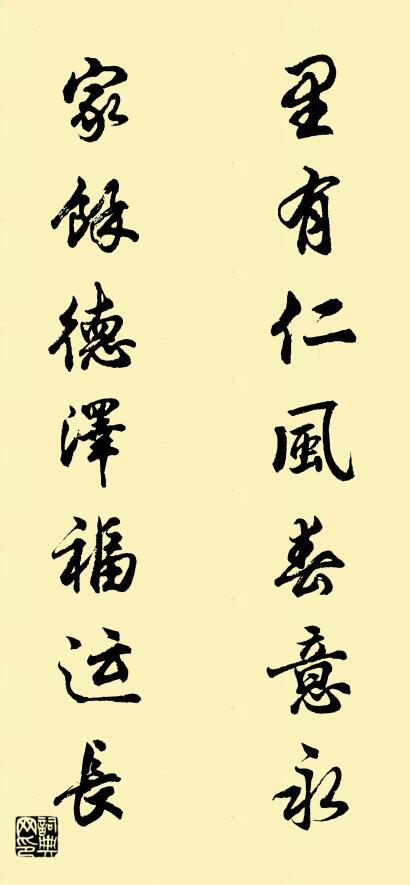 里有仁風春意永
家餘德澤福运長
詞典网印